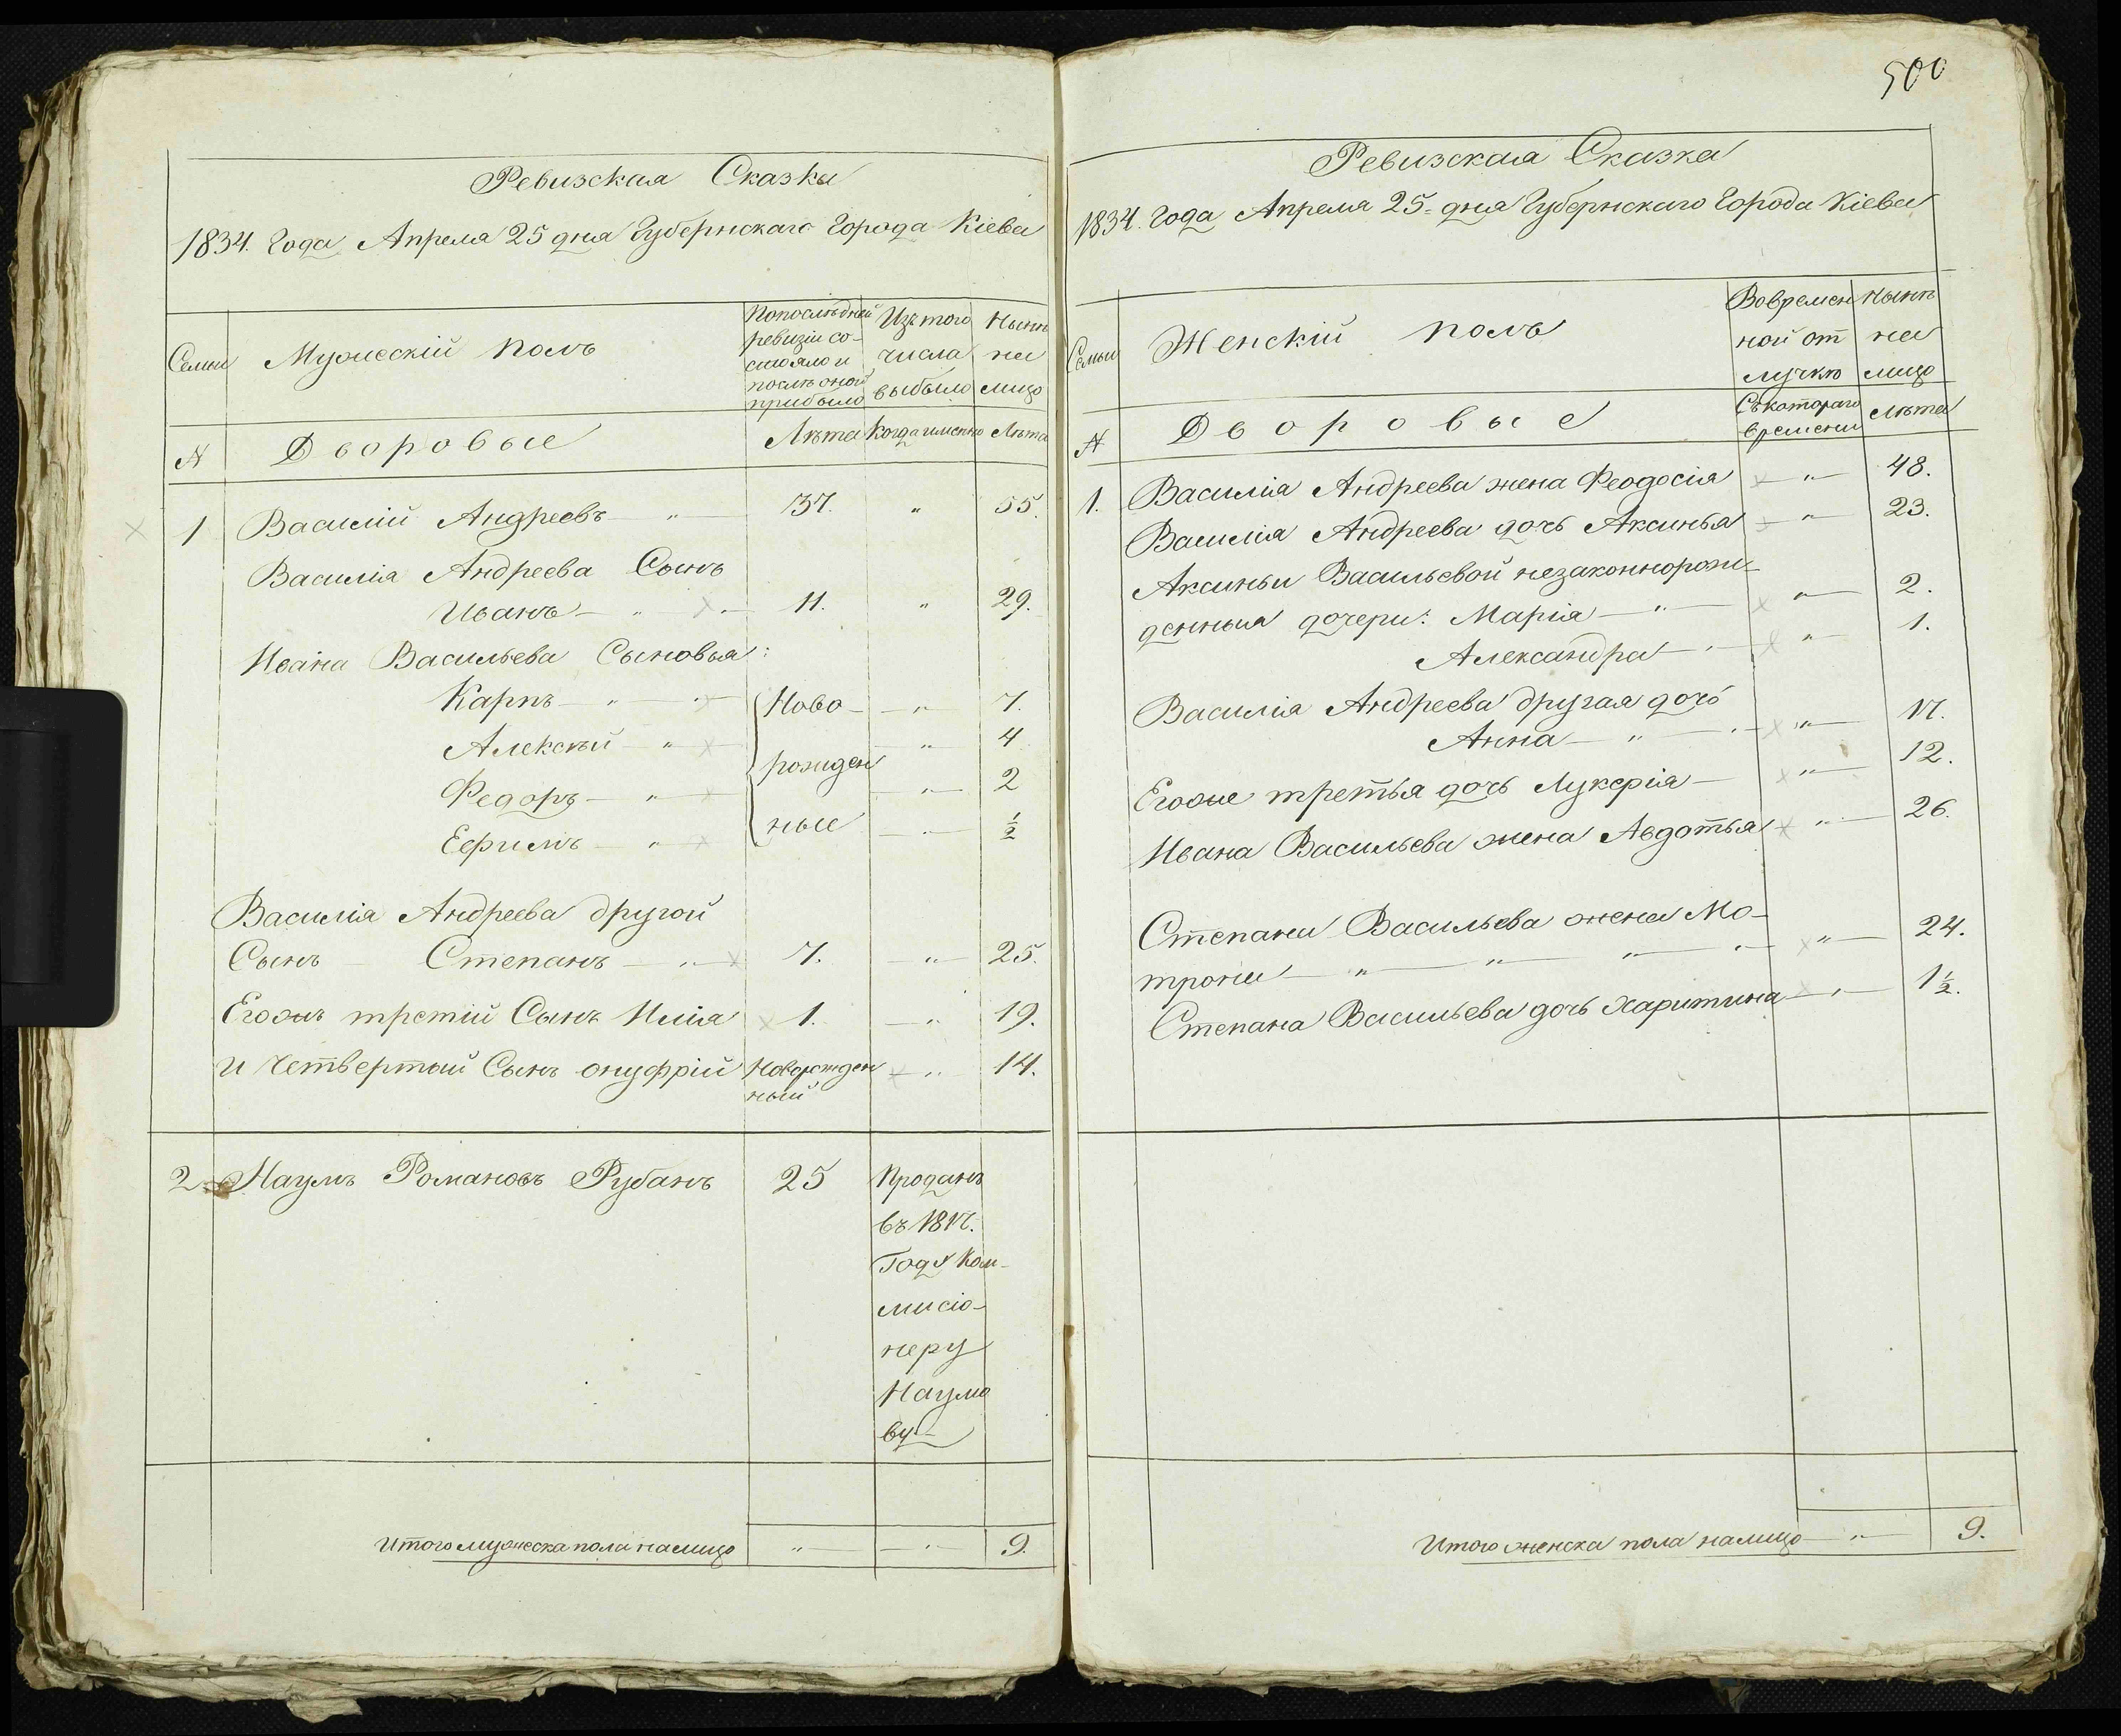 Ревизская Сказка
1834. Года Апреля 25 дня Губернскаго Города Кіева
Семьи
Мужескій полъ
Попослѣдней ревизіи состояло и послѣ оной прибыло
Изъ того числа выбыло
Нынѣ на лицо
N
Дворовые
Лѣта
Когда именно
Лѣта
1 Василій Андреевъ — " — 37. " 55.
Василія Андреева Сынъ
Иванъ — " — 11. " 29.
Ивана Васильева Сыновья:
Карпъ — " — Ново- — " — 7.
Алексѣй — " — — " — 4
Федоръ — " — рожден — " — 2
Ефимъ — " — ные — " — ½
Василія Андреева другой
Сынъ — Степанъ — " — 7. — " — 25.
Егожъ третій Сынъ Илія 1. — " 19.
и Четвертый Сынъ онуфрій Новорожден — " 14.
ный
2. Наумъ Романовъ Рубанъ 25 Проданъ
въ 1817.
Году Ком-
мисіо-
неру
Наумо
ву —
Итого мужеска пола налицо " — — " — 9.
500
Ревизская Сказка
1834. Года Апреля 25= дня Губернскаго Города Кіева
Семьи
Женскій полъ
Вовремен
ной от
лучкѣ
Нынѣ
на
лицо
N
Дворовые
Съкотораго
времени
Лѣта
1. Василія Андреева жена Феодосія — " — 48.
Василія Андреева дочь Аксинья — " — 23.
Аксиньи Васильевой незаконнорож-
денныя дочери: Марія — " — " — 2.
Александра — " — " — 1.
Василія Андреева другая дочь
Анна — " — " — 17.
Егоже третья дочь Лукерія — " — 12.
Ивана Васильева жена Авдотья — " — 26.
Степана Васильева жена Мо-
трона — " — " — " — " — 24.
Степана Васильева дочь Харитина — " — 1½.
Итого женска пола налицо — " — 9.